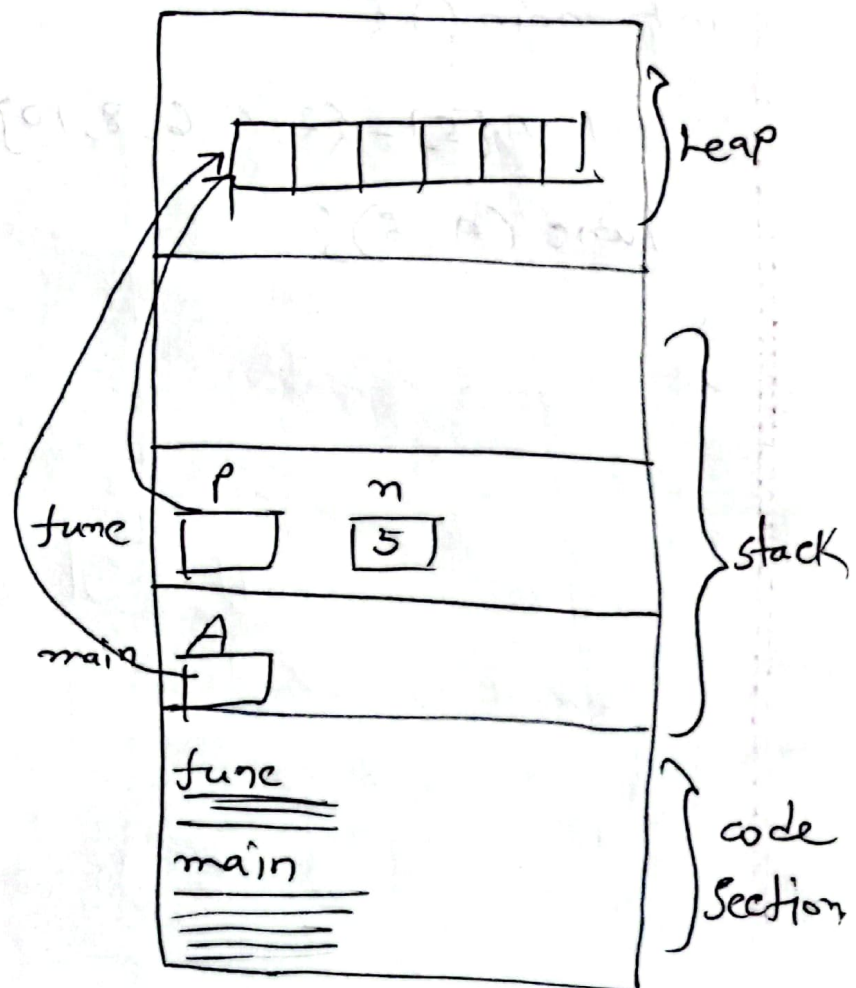 Heap
P n
func 5
stack
A
main
func
main
code
section